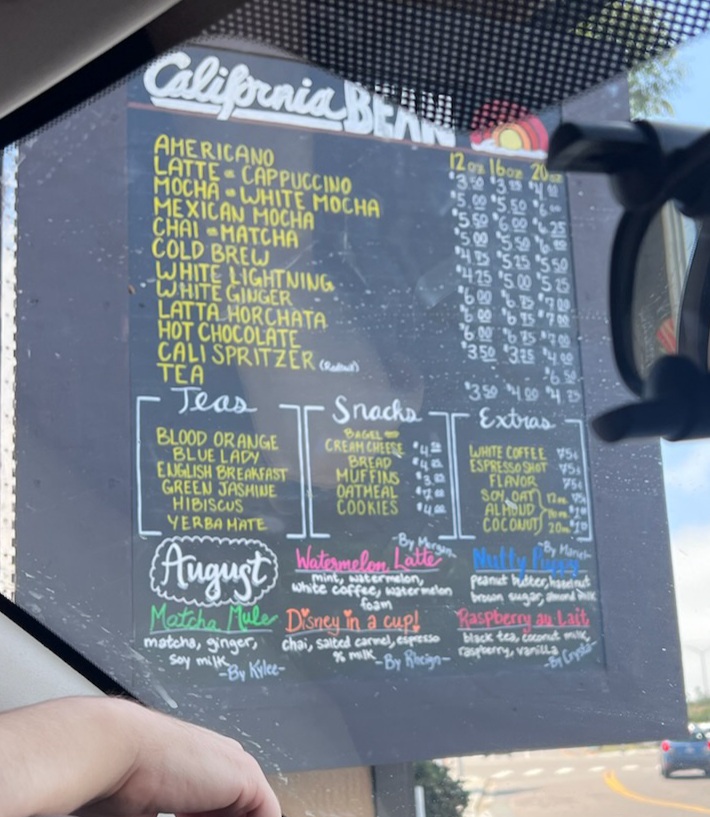 California BEAN
12oz 16oz 20oz
AMERICANO $3.50 $3.75
LATTE = CAPPUCCINO $5.00 $5.50
MOCHA = WHITE MOCHA $5.50 $6.00 $6.25
MEXICAN MOCHA $5.00 $5.50
CHAI = MATCHA $4.75 $5.25 $5.50
COLD BREW $4.25 $5.00 $5.25
WHITE LIGHTNING $6.00 $6.75 $7.00
WHITE GINGER $6.00 $6.75 $7.00
LATTA HORCHATA $6.00
HOT CHOCOLATE $3.50 $3.75 $4.00
CALI SPRITZER $6.50
TEA $3.50 $4.00
Teas
BLOOD ORANGE
BLUE LADY
ENGLISH BREAKFAST
GREEN JASMINE
HIBISCUS
YERBA MATE
Snacks
BAGEL
CREAM CHEESE
BREAD
MUFFINS
OATMEAL
COOKIES
Extras
WHITE COFFEE 75¢
ESPRESSO SHOT 75¢
FLAVOR 75¢
SOY OAT
ALMOND
COCONUT
August
-By Morgan-
Watermelon Latte
mint, watermelon,
white coffee, watermelon
foam
Nutty
peanut butter, hazelnut
brown sugar, almond milk
Matcha Mule
matcha, ginger,
soy milk
-By Kylee-
Disney in a cup!
chai, salted carmel, espresso
% milk
Raspberry au Lait
black tea, coconut milk,
raspberry, vanilla